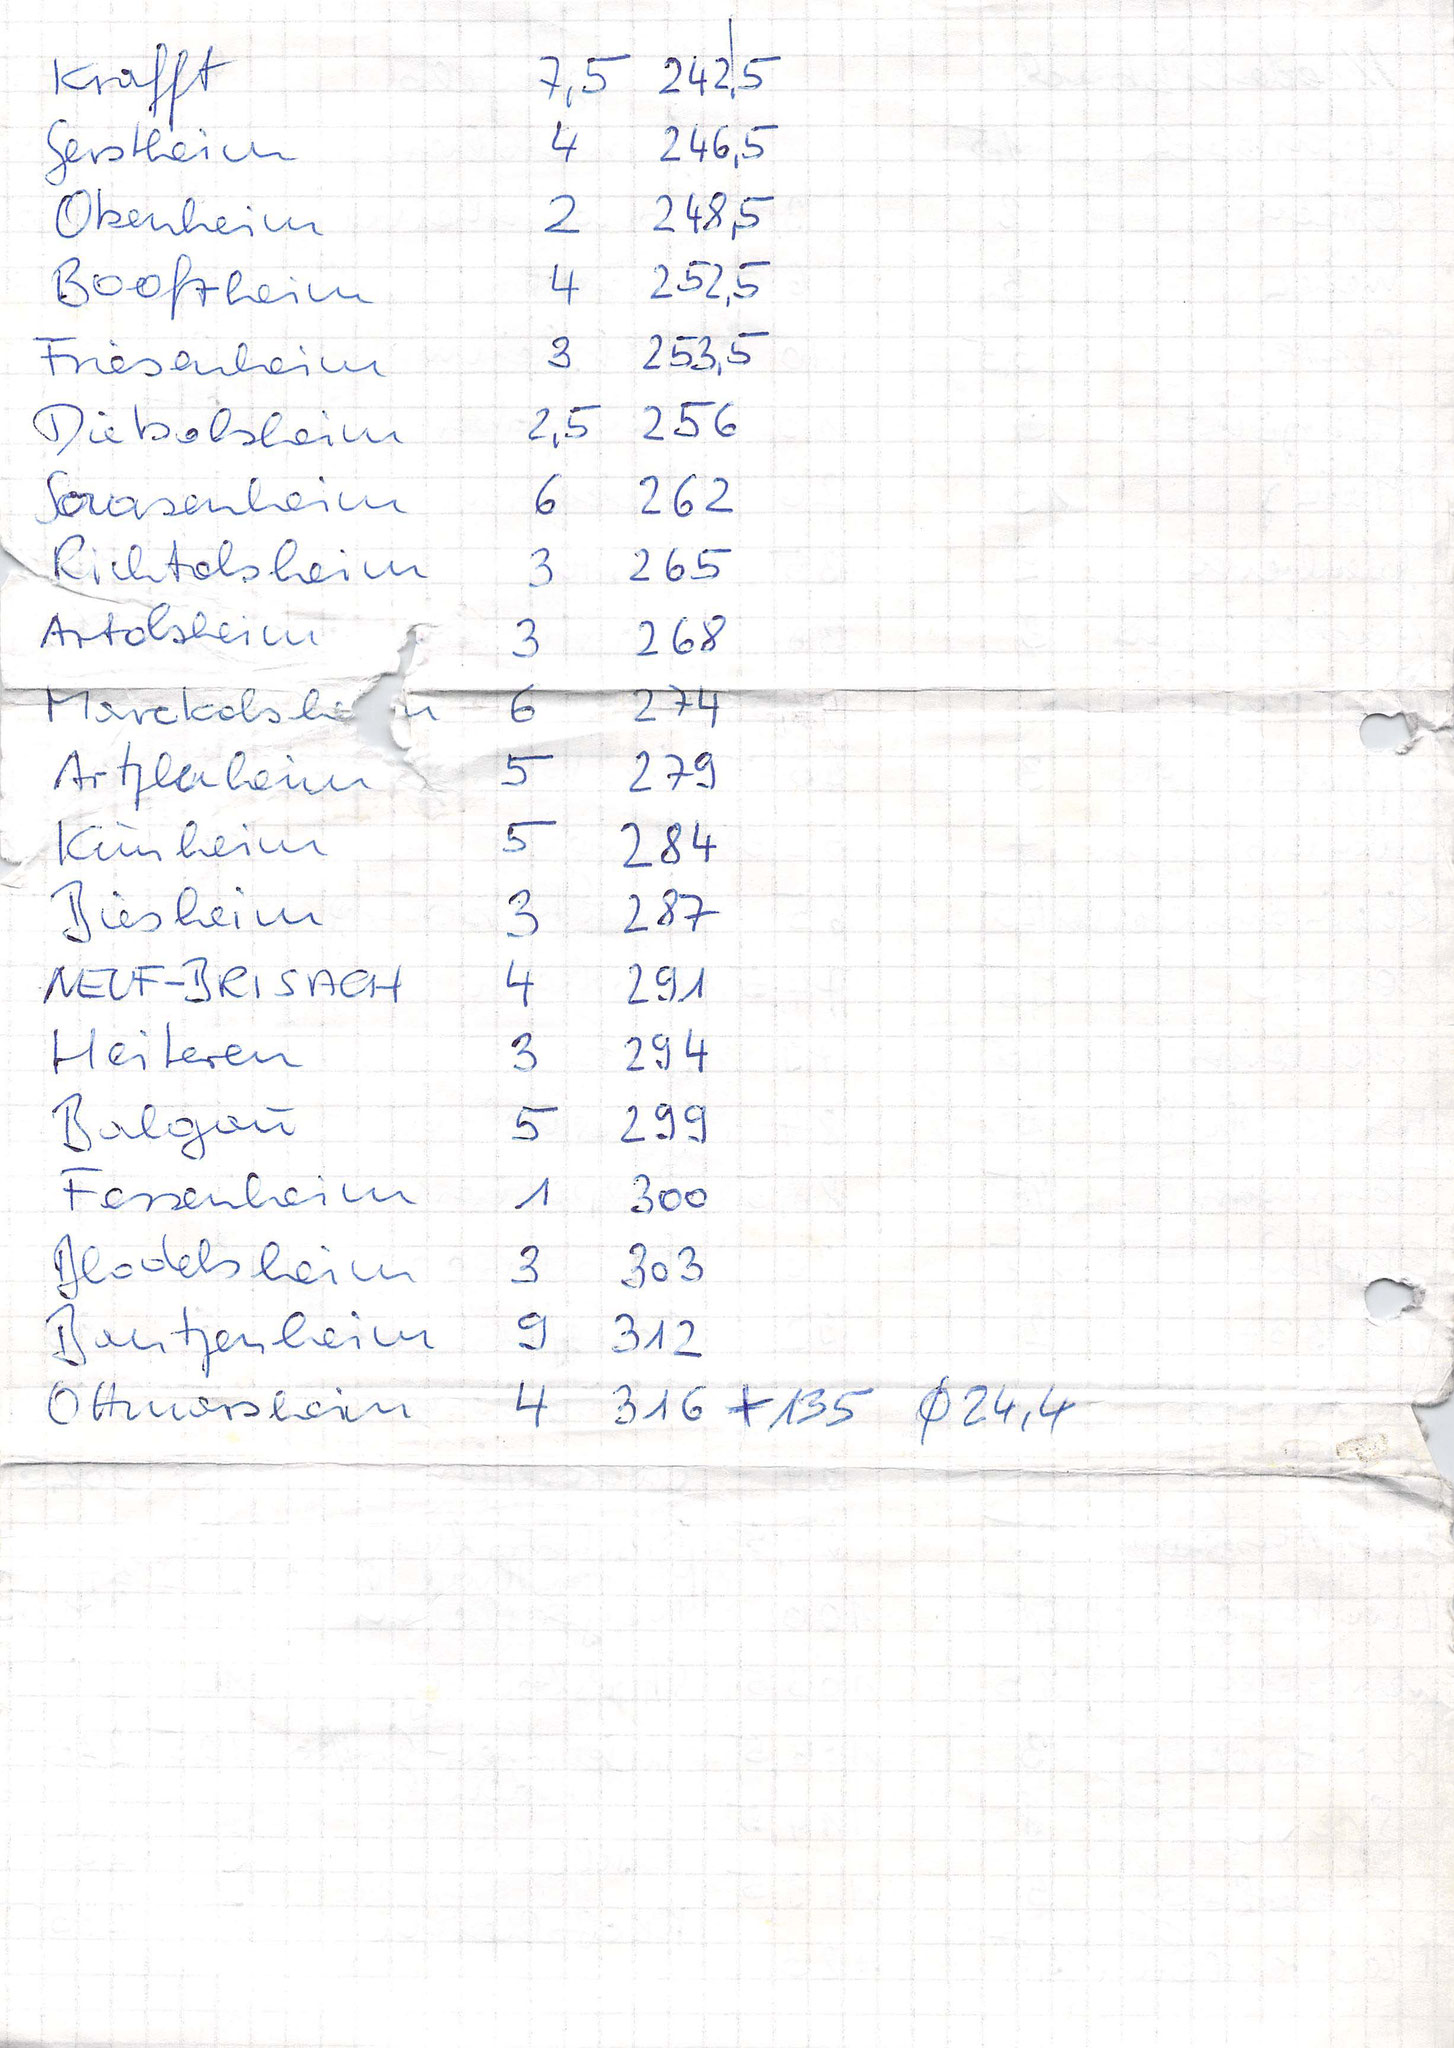 Krafft 7,5 242,5
Gerstheim 4 246,5
Obenheim 2 248,5
Booftzheim 4 252,5
Friesenheim 3 253,5
Diebolsheim 2,5 256
Saasenheim 6 262
Richtolsheim 3 265
Artolsheim 3 268
Marckolsheim 6 274
Artzenheim 5 279
Kunheim 5 284
Biesheim 3 287
NEUF-BRISACH 4 291
Heiteren 3 294
Balgau 5 299
Fessenheim 1 300
Blodelsheim 3 303
Bantzenheim 9 312
Ottmarsheim 4 316 + 135 Ø 24,4